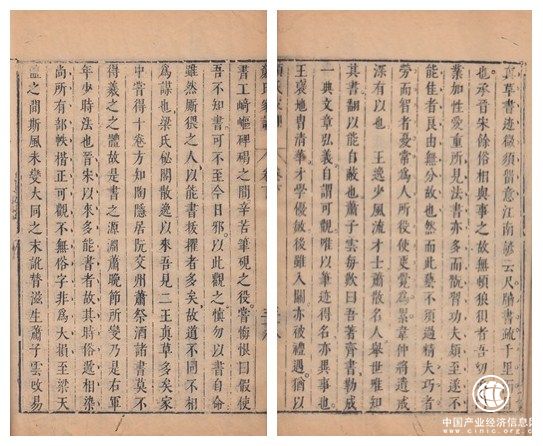 真草書迹微須留意江南諺云尺牘書疏千里
也承晉宋餘俗相與事之故無頓狼狽者吾幼
業加性愛重所見法書亦多而翫習功夫頗至遂不
能佳者良由無分故也然而此藝不須過精夫巧者
勞而智者憂常爲人所役使更覺爲累韋仲將遺戒
深有以也王逸少風流才士蕭散名人舉世惟知
其書翻以能自蔽也蕭子雲每歎曰吾著齊書勒成
一典文章弘義自謂可觀唯以筆迹得名亦異事也
王襃地胄清華才學優敏後雖入關亦被禮遇猶以
顏氏家訓
卷下
書工崎嶇碑碣之間辛苦筆硯之役嘗悔恨曰假使
吾不知書可不至今日邪以此觀之慎勿以書自命
雖然廝猥之人以能書拔擢者多矣故道不同不相
爲謀也梁氏秘閣散逸以來吾見二王真草多矣家
中嘗得十卷方知陶隱居阮交州蕭祭酒諸書莫不
得羲之之體故是書之源淵蕭晚節所變乃是右軍
年少時法也晉宋以來多能書者故其時俗遞相染
尚所有部帙楷正可觀不無俗字非爲大損至梁天
監之間斯風未變大同之末訛替滋生蕭子雲改易
中国产业经济信息网
www.cinic.org.cn